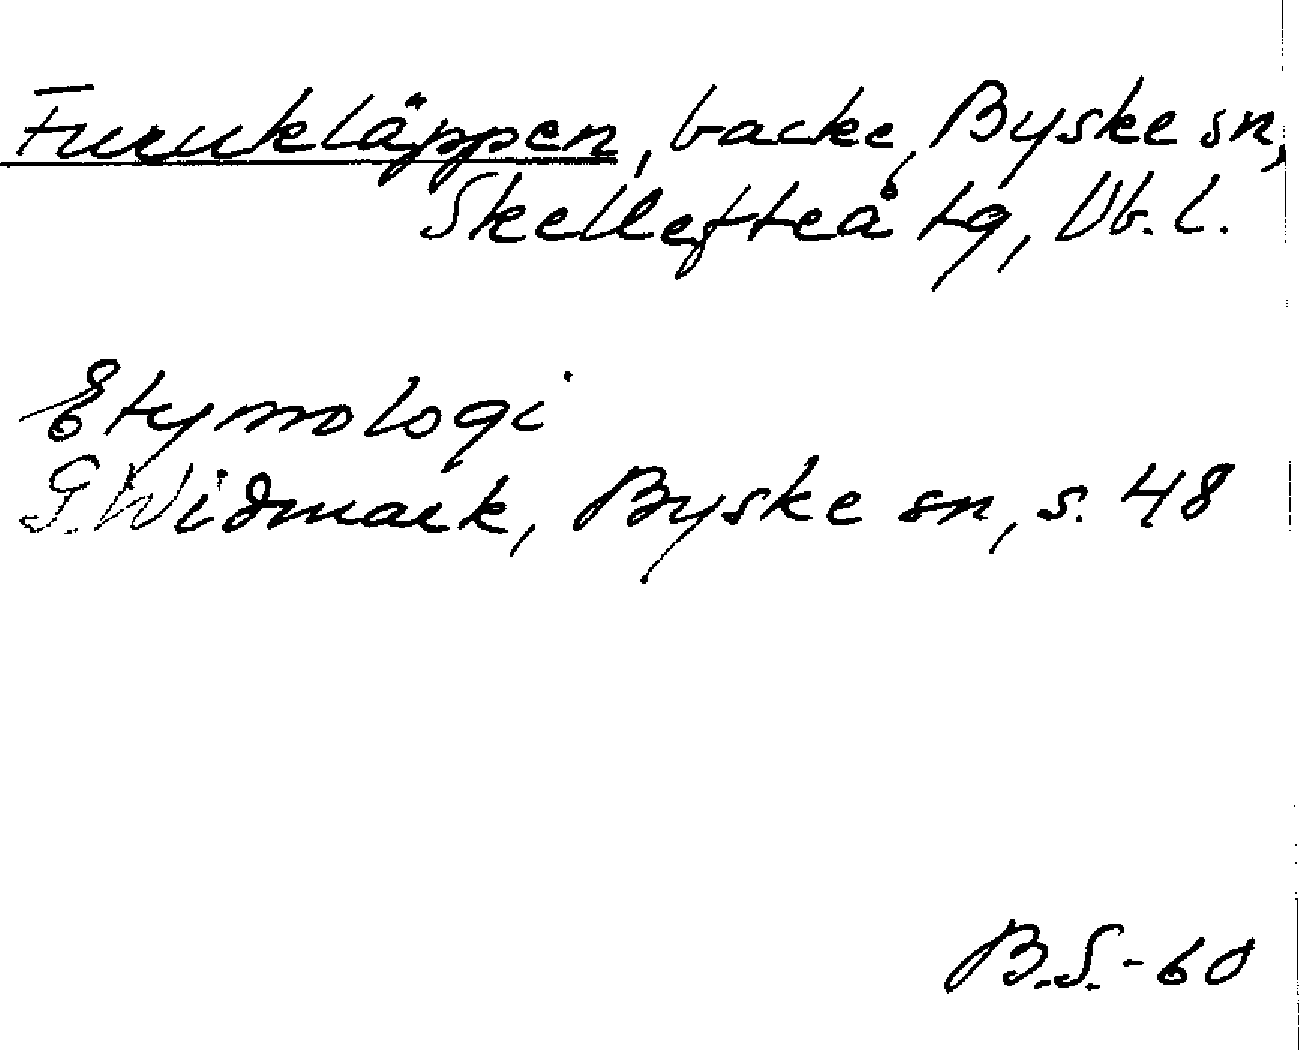 Furukläppen, backe, Byske sn,
Skellefteå tg, Vb. l.
Etymologi
G. Widmark, Byske sn, s. 48
B.S. - 60